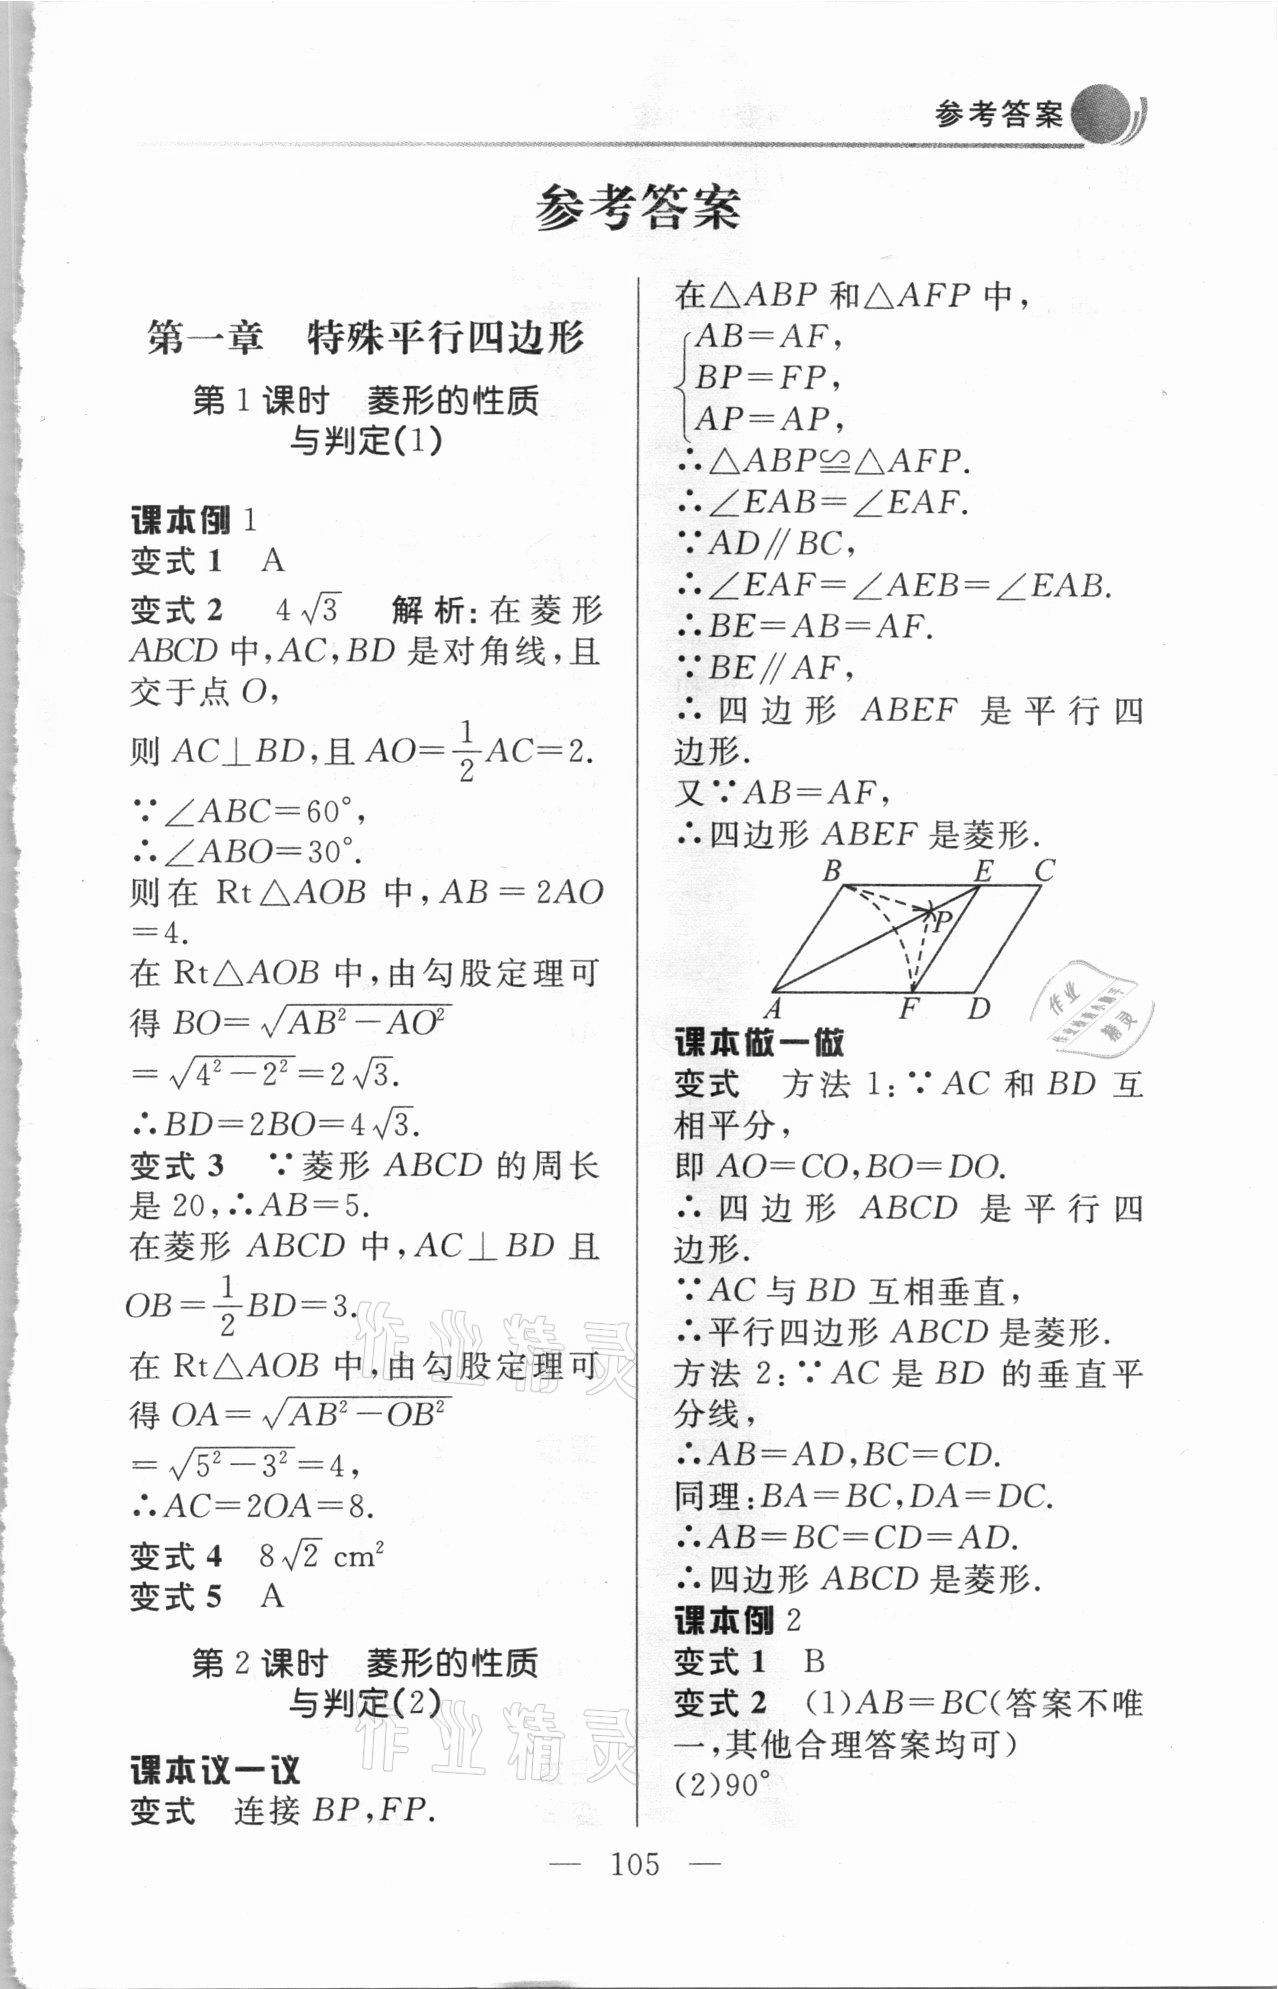 参考答案
参考答案
第一章　特殊平行四边形
第1课时　菱形的性质
与判定(1)
课本例1
变式1　A
变式2　4√3　解析:在菱形
ABCD中,AC,BD是对角线,且
交于点O,
则AC⊥BD,且AO=1/2AC=2.
∵∠ABC=60°,
∴∠ABO=30°.
则在Rt△AOB中,AB=2AO
=4.
在Rt△AOB中,由勾股定理可
得BO=√(AB²-AO²)
=√(4²-2²)=2√3.
∴BD=2BO=4√3.
变式3　∵菱形ABCD的周长
是20,∴AB=5.
在菱形ABCD中,AC⊥BD且
OB=1/2BD=3.
在Rt△AOB中,由勾股定理可
得OA=√(AB²-OB²)
=√(5²-3²)=4,
∴AC=2OA=8.
变式4　8√2 cm²
变式5　A
第2课时　菱形的性质
与判定(2)
课本议一议
变式　连接BP,FP.
在△ABP和△AFP中,
AB=AF,
BP=FP,
AP=AP,
∴△ABP≌△AFP.
∴∠EAB=∠EAF.
∵AD∥BC,
∴∠EAF=∠AEB=∠EAB.
∴BE=AB=AF.
∵BE∥AF,
∴四边形ABEF是平行四
边形.
又∵AB=AF,
∴四边形ABEF是菱形.
B E C
P
A F D
课本做一做
变式　方法1:∵AC和BD互
相平分,
即AO=CO,BO=DO.
∴四边形ABCD是平行四
边形.
∵AC与BD互相垂直,
∴平行四边形ABCD是菱形.
方法2:∵AC是BD的垂直平
分线,
∴AB=AD,BC=CD.
同理:BA=BC,DA=DC.
∴AB=BC=CD=AD.
∴四边形ABCD是菱形.
课本例2
变式1　B
变式2　(1)AB=BC(答案不唯
一,其他合理答案均可)
(2)90°
— 105 —
作业精灵
作业精灵
作业
精灵